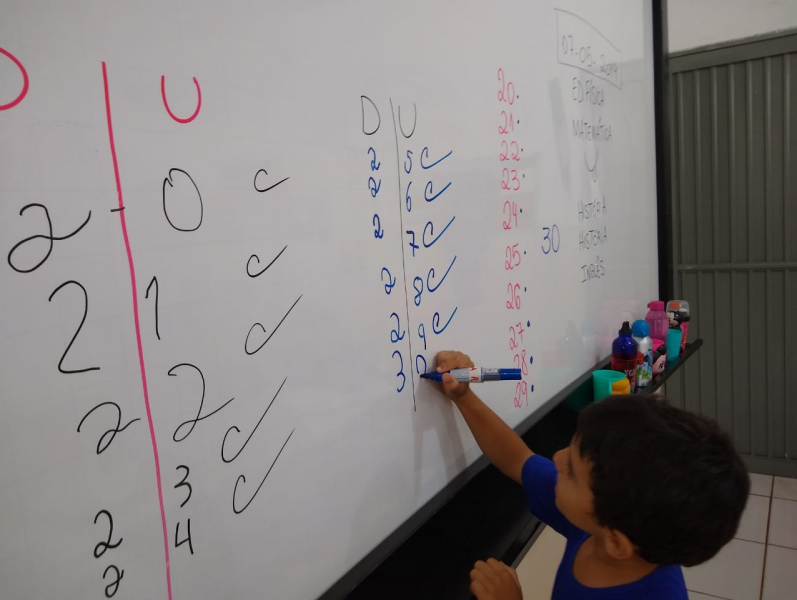 D U
2 - 0
2 1
2 2
2 3
2 4
2
D U
2 5
2 6
2 7
2 8
2 9
3
20.
21.
22.
23.
24.
25.
26.
27.
28.
29.
30
ED FÍSICA
MATEMÁTICA
HISTÓRIA
INGLÊS